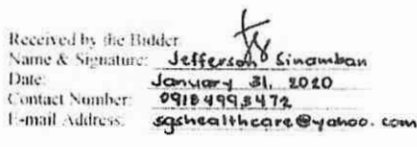 Received by the Bidder
Name & Signature: Jefferson Sinamban
Date: January 31, 2020
Contact Number: 09184993472
E-mail Address: sgshealthcare@yahoo.com